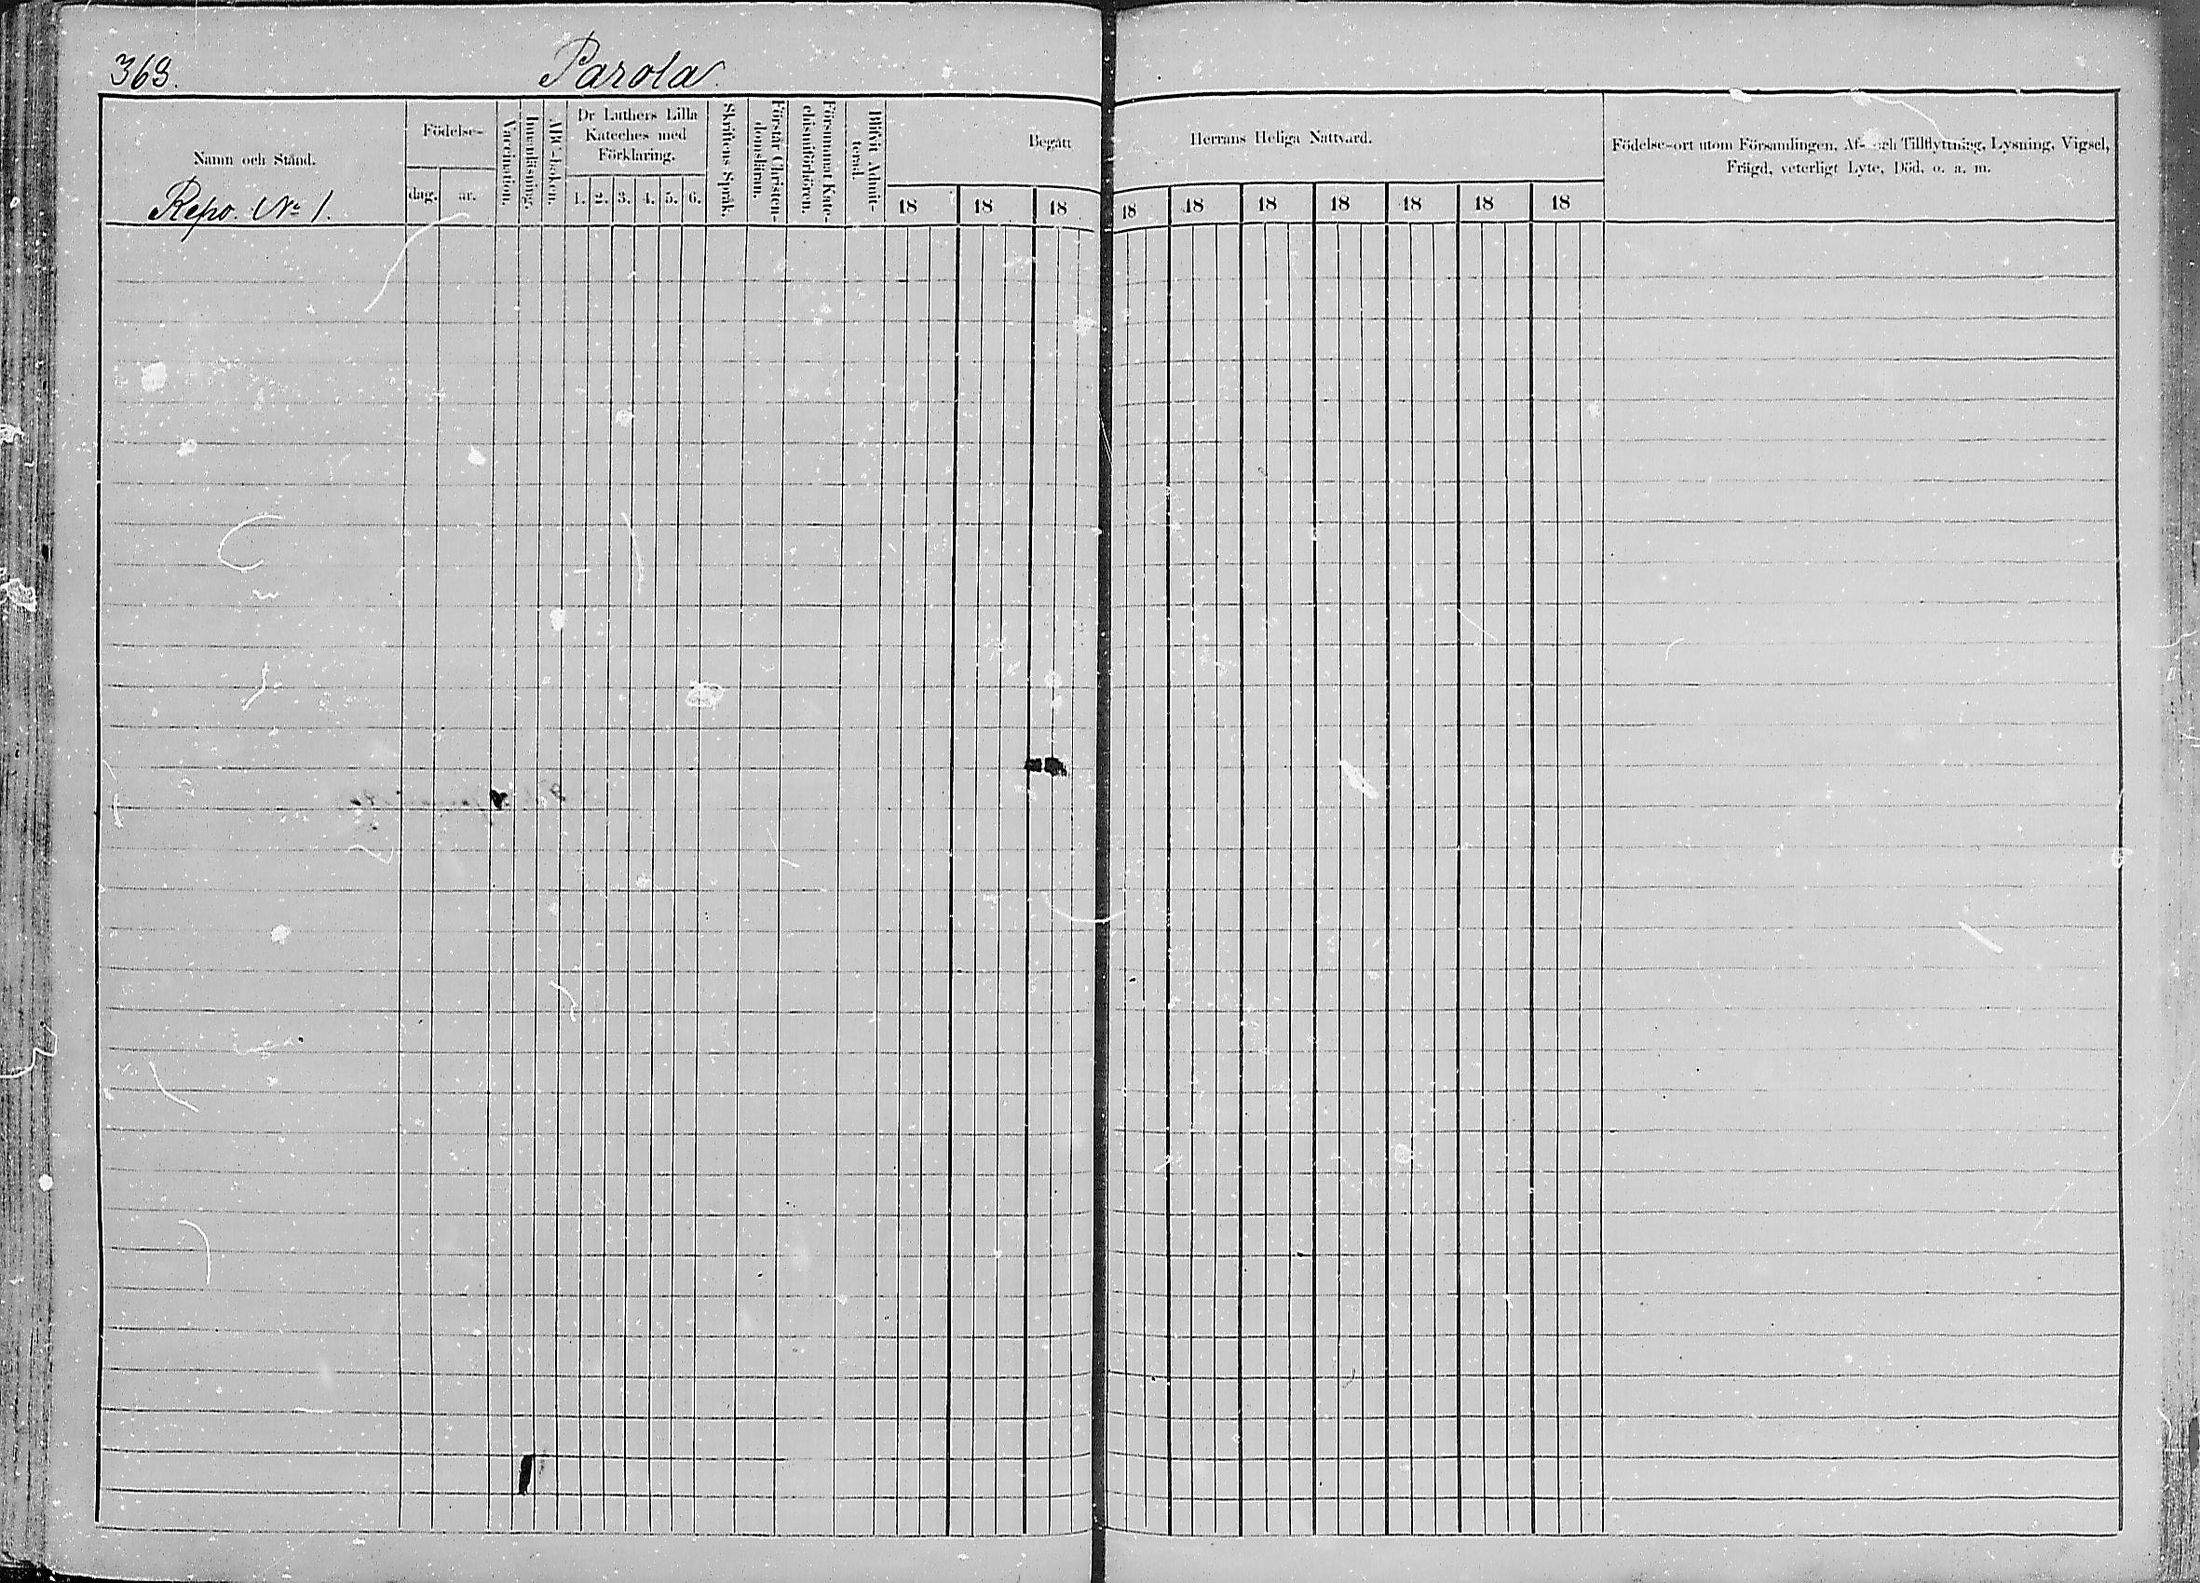 368.
Parola
Namn och Stånd.
Repo. No 1.
Födelse-
dag.
år.
Vaccination.
Innanläsning.
ABC-boken.
Dr Luthers Lilla
Kateches med
Förklaring.
1. 2. 3. 4. 5. 6.
Skriftens Språk.
Förstår Christen-
domsläran.
Försummat Kate-
chismiförhören.
Blifvit Admit-
terad.
Begått
18 18 18
Herrans Heliga Nattvard.
18 18 18 18 18 18 18
Födelse-ort utom Församlingen, Af- och Tillflyttning, Lysning, Vigsel,
Frägd, veterligt Lyte, Död, o. a. m.